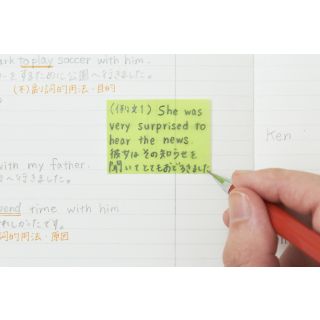 ark to play soccer with him.
ーをするために公園へ行きました。
(不)副詞的用法・目的
(例文1) She was
very surprised to
hear the news.
彼女はその知らせを
聞いてとてもおどろきました
Ken
with my father.
へ行きました。
end time with him
れしかったです。
詞的用法・原因